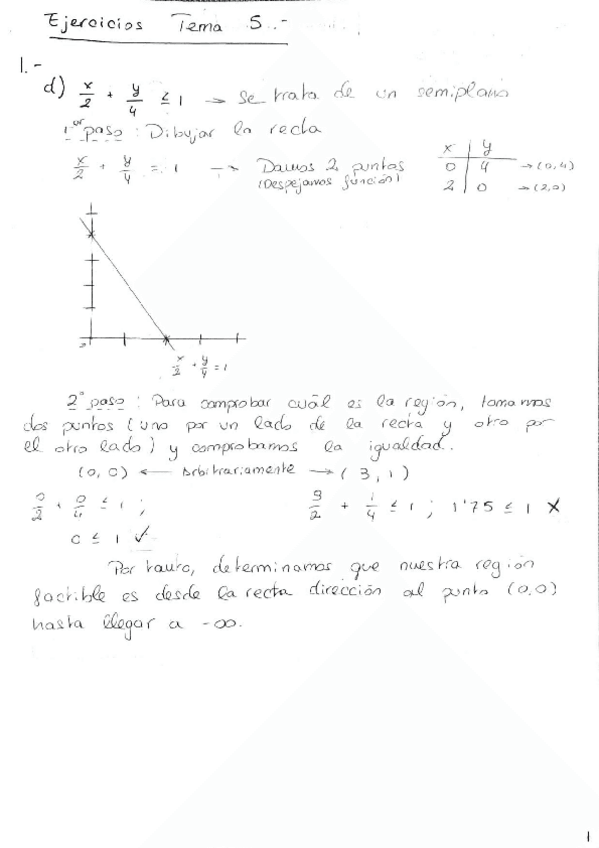 Ejercicios Tema 5.-
1.-
d) x/2 + y/4 ≤ 1 → Se trata de un semiplano
1er paso: Dibujar la recta
x/2 + y/4 = 1 → Damos 2 puntos
(Despejamos función)
x | y
0 | 4 → (0,4)
2 | 0 → (2,0)
x/2 + y/4 = 1
2º paso: Para comprobar cuál es la región, tomamos
dos puntos (uno por un lado de la recta y otro por
el otro lado) y comprobamos la igualdad.
(0,0) ← Arbitrariamente → (3,1)
0/2 + 0/4 ≤ 1 ; 3/2 + 1/4 ≤ 1 ; 1'75 ≤ 1 X
0 ≤ 1 ✓
Por tanto, determinamos que nuestra región
factible es desde la recta dirección al punto (0,0)
hasta llegar a -∞.
1